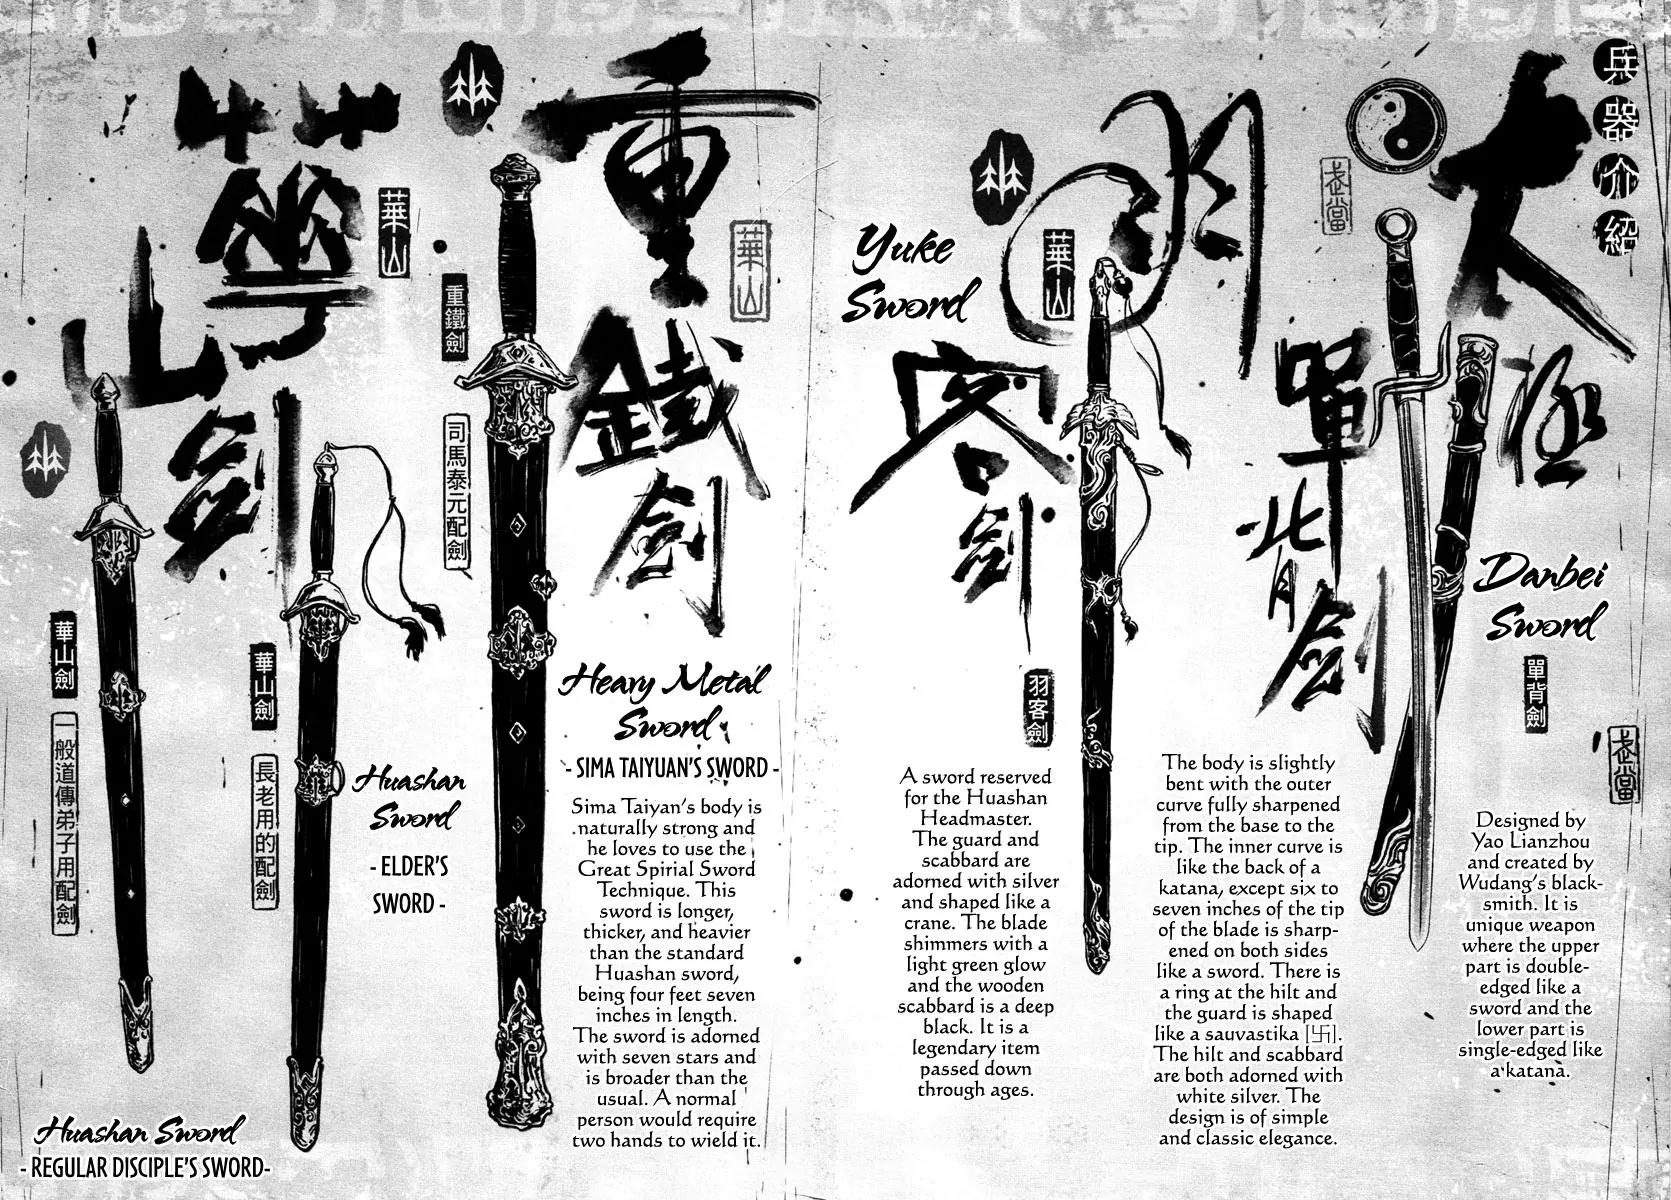 兵器介紹
太極
武當
單背劍
Danbei
Sword
單背劍
武當
Designed by
Yao Lianzhou
and created by
Wudang's black-
smith. It is
unique weapon
where the upper
part is double-
edged like a
sword and the
lower part is
single-edged like
a katana.
The body is slightly
bent with the outer
curve fully sharpened
from the base to the
tip. The inner curve is
like the back of a
katana, except six to
seven inches of the tip
of the blade is sharp-
ened on both sides
like a sword. There is
a ring at the hilt and
the guard is shaped
like a sauvastika [卐].
The hilt and scabbard
are both adorned with
white silver. The
design is of simple
and classic elegance.
羽客劍
華山
Yuke
Sword
羽客劍
A sword reserved
for the Huashan
Headmaster.
The guard and
scabbard are
adorned with silver
and shaped like a
crane. The blade
shimmers with a
light green glow
and the wooden
scabbard is a deep
black. It is a
legendary item
passed down
through ages.
重鐵劍
華山
重鐵劍
司馬泰元配劍
Heavy Metal
Sword
- SIMA TAIYUAN'S SWORD -
Sima Taiyan's body is
naturally strong and
he loves to use the
Great Spirial Sword
Technique. This
sword is longer,
thicker, and heavier
than the standard
Huashan sword,
being four feet seven
inches in length.
The sword is adorned
with seven stars and
is broader than the
usual. A normal
person would require
two hands to wield it.
華山劍
華山
華山劍
長老用的配劍
Huashan
Sword
- ELDER'S
SWORD -
華山劍
一般道傳弟子用配劍
Huashan Sword
- REGULAR DISCIPLE'S SWORD-